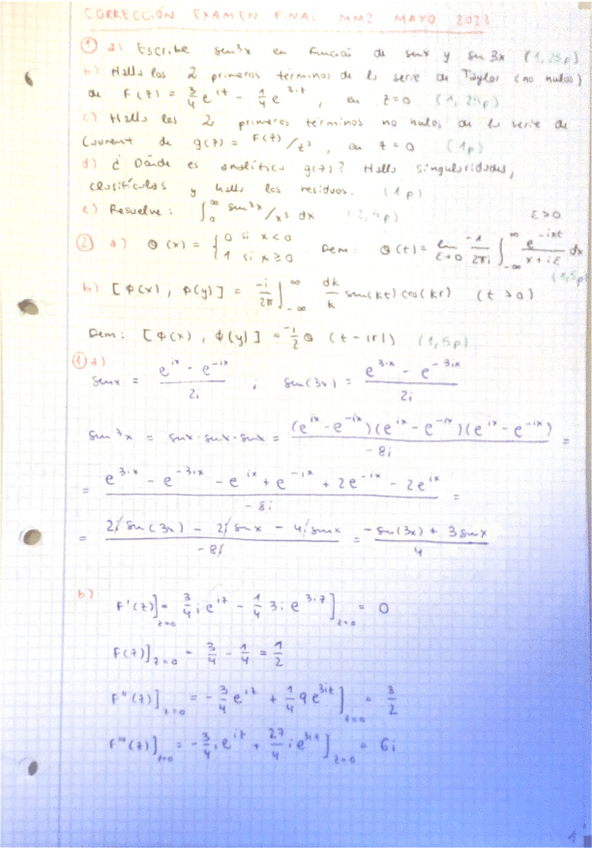 CORRECCIÓN EXAMEN FINAL MM2 MAYO 2023
① a) Escribe sen³x en función de senx y sen 3x (1,25p)
b) Halla los 2 primeros términos de la serie de Taylor (no nulos)
de F(z) = 3/4 e^{iz} - 1/4 e^{3iz}, en z=0 (1,25p)
c) Halla los 2 primeros términos no nulos de la serie de
Laurent de g(z) = F(z)/z³, en z=0 (1p)
d) ¿Dónde es analítica g(z)? Halla singularidades,
clasifícalas y halla los residuos. (1p)
e) Resuelve: ∫_0^∞ sen³x/x³ dx
ε>0
② a) Θ(x) = { 0 si x<0 ; 1 si x≥0 Dem: Θ(t) = lim_{ε→0} -1/2πi ∫_{-∞}^{∞} e^{-ixt}/(x+iε) dx
(1,5p)
b) [ϕ(x), ϕ(y)] = -i/2π ∫_{-∞}^{∞} dk/k sen(kt) cos(kr) (t>0)
Dem: [ϕ(x), ϕ(y)] = -i/2 Θ(t-|r|) (1,5p)
① a)
senx = (e^{ix} - e^{-ix})/2i ; sen(3x) = (e^{3ix} - e^{-3ix})/2i
sen³x = senx·senx·senx = (e^{ix} - e^{-ix})(e^{ix} - e^{-ix})(e^{ix} - e^{-ix})/-8i =
= (e^{3ix} - e^{-3ix} - e^{ix} + e^{-ix} + 2e^{-ix} - 2e^{ix})/-8i =
= (2i sen(3x) - 2i senx - 4i senx)/-8i = (-sen(3x) + 3senx)/4
b)
F'(z)]_{z=0} = 3/4 i e^{iz} - 1/4 3i e^{3iz}]_{z=0} = 0
F(z)]_{z=0} = 3/4 - 1/4 = 1/2
F''(z)]_{z=0} = -3/4 e^{iz} + 1/4 9 e^{3iz}]_{z=0} = 3/2
F'''(z)]_{z=0} = -3/4 i e^{iz} + 27/4 i e^{3iz}]_{z=0} = 6i
1